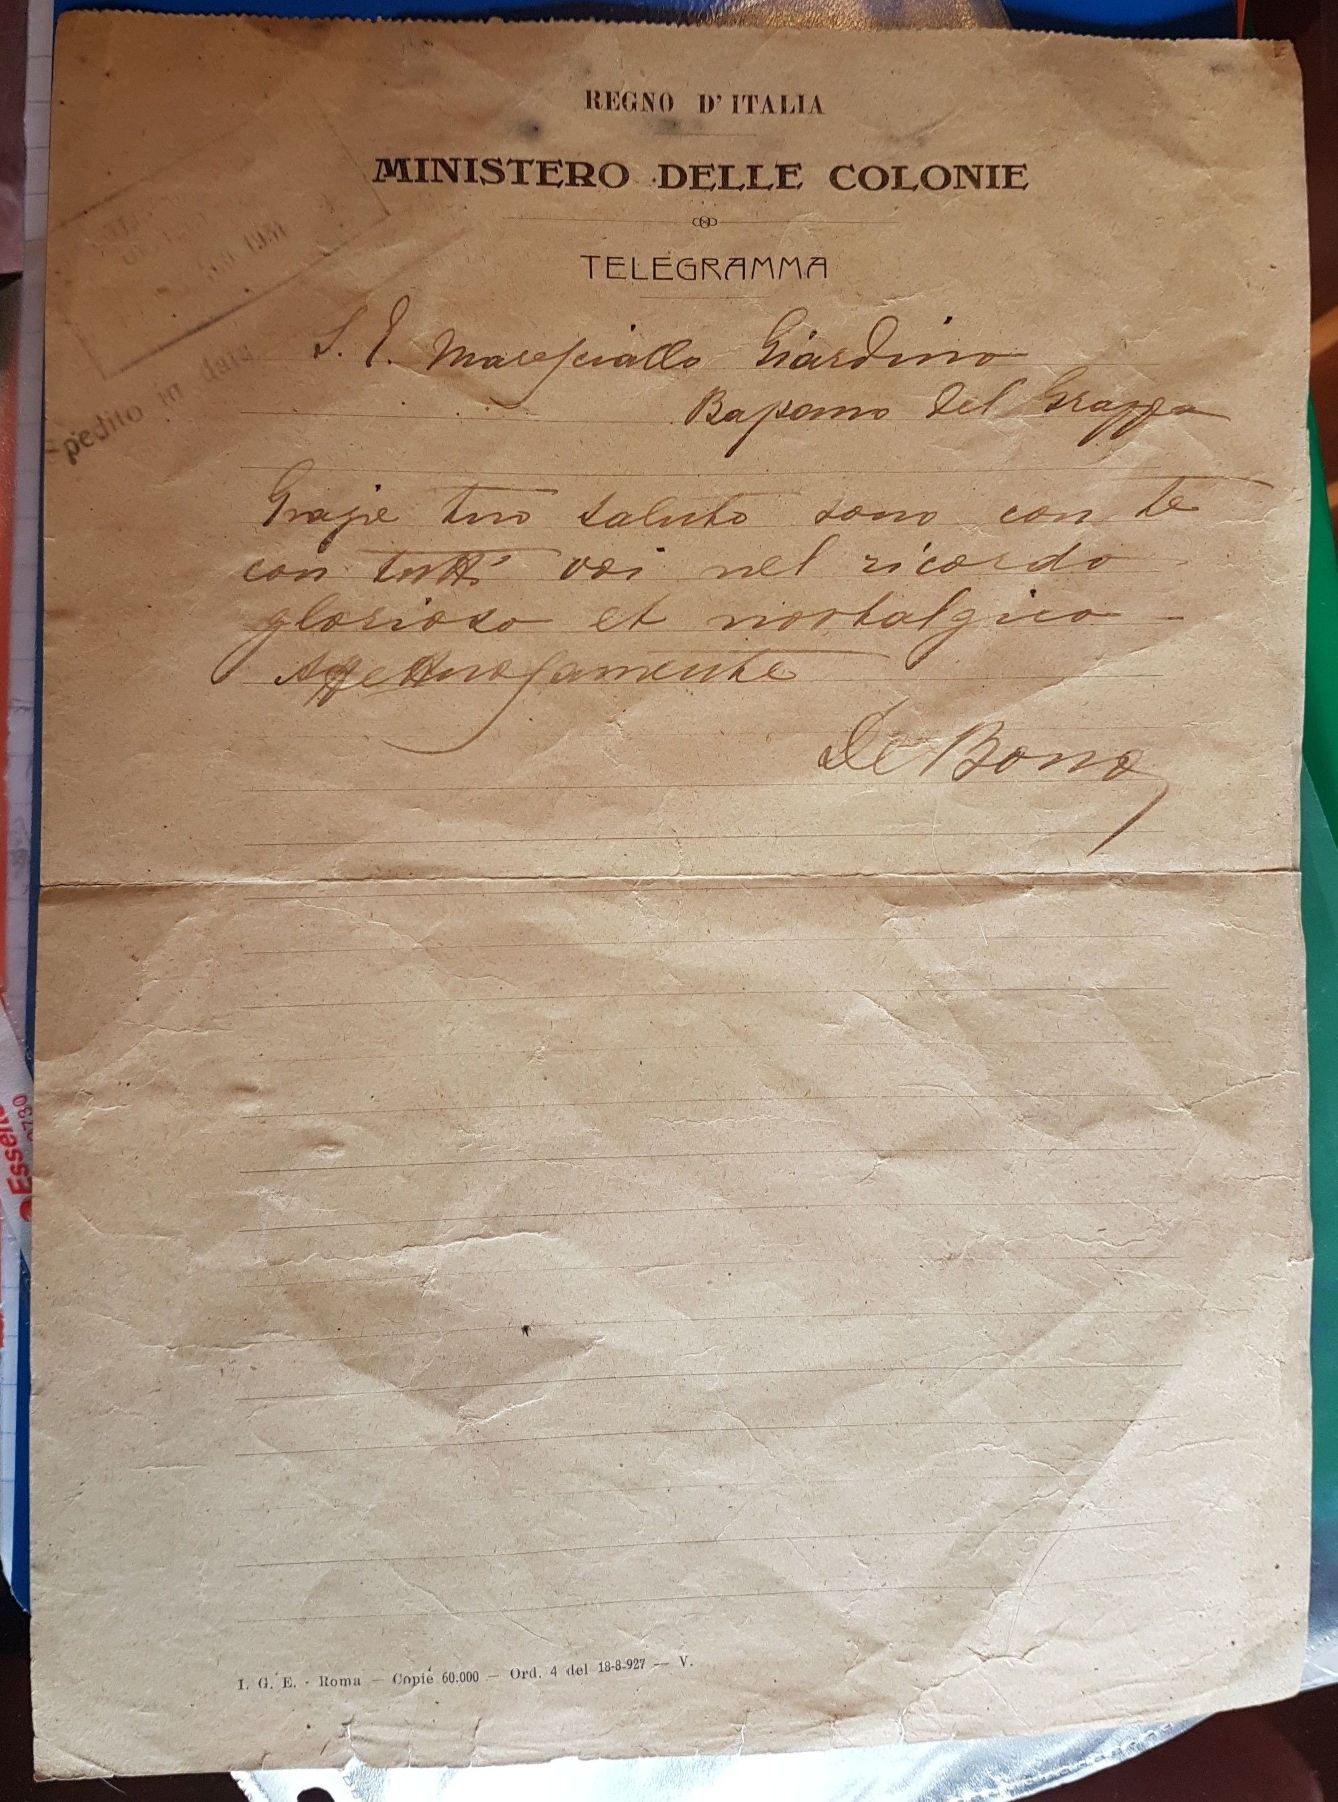 REGNO D'ITALIA
MINISTERO DELLE COLONIE
TELEGRAMMA
1931
S. E. Maresciallo Giardino
Bassano del Grappa
pedito in data
Grazie tuo saluto sono con te
con tutti voi nel ricordo
glorioso et nostalgico -
Affettuosamente
De Bono
I. G. E. - Roma — Copie 60.000 — Ord. 4 del 18-8-927 — V.
Essel
0730